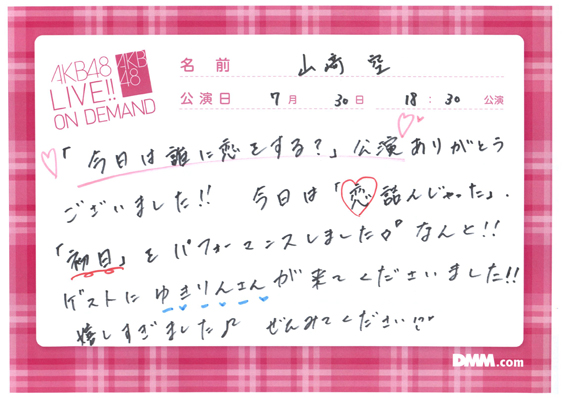 AKB48
LIVE!!
ON DEMAND
AKB
48
名前 山﨑 空
公演日 7月 30日 18:30 公演
「今日は誰に恋をする?」公演ありがとう
ございました!! 今日は「恋詰んじゃった」.
「初日」をパフォーマンスしました なんと!!
ゲストにゆきりんさんが来てくださいました!!
嬉しすぎました♪ ぜひみてください!!
DMM.com